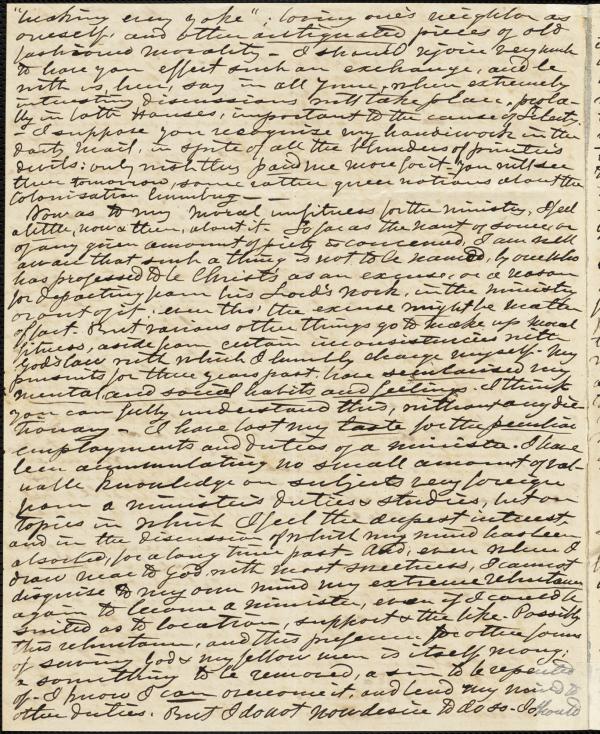 "breaking every yoke"; loving one's neighbor as
oneself, and other antiquated pieces of old
fashioned morality – I should rejoice very much
to have you effect such an exchange, and be
with us, here, say in all June, when extremely
interesting discussions will take place, proba-
bly in both Houses, important to the cause of Liberty.
– I suppose you recognise my handiwork in the
daily Mail, in spite of all the blunders of printer's
devils; only wish they paid me more for it – You will see
there tomorrow, some rather queer notions about the
Colonisation humbug. –
Now as to my moral unfitness for the ministry, I feel
a little, now & then, about it. So far as the want of some, or
of any given amount of piety is concerned, I am well
aware that such a thing is not to be named, by one who
has professed to be Christ's as an excuse, or a reason
for departing from his Lord's work, in the ministry
or out of it: even tho' the excuse might be matter
of fact. But various other things go to make up moral
fitness, aside from certain inconsistencies with
God's law with which I humbly charge myself. My
pursuits for three years past, have secularised my
mental and social habits and feelings. I think
you can fully understand this, without any dic-
tionary – I have lost my taste for the peculiar
employments and duties of a minister. I have
been accumulating no small amount of val-
uable knowledge on subjects very foreign
from a minister's duties & studies, but on
topics in which I feel the deepest interest,
and in the discussion of which my mind has been
absorbed, for a long time past. And, even when I
draw near to God with most sweetness, I cannot
disguise to my own mind my extreme reluctance
again to become a minister, even if I could be
suited as to location, support & the like. Possibly
this reluctance, and this preference for other forms
of serving God & my fellow men is itself wrong;
& something to be removed, a sin to be repented
of – I know I can overcome it, and bend my mind to
other duties. But I do not now desire to do so – I should